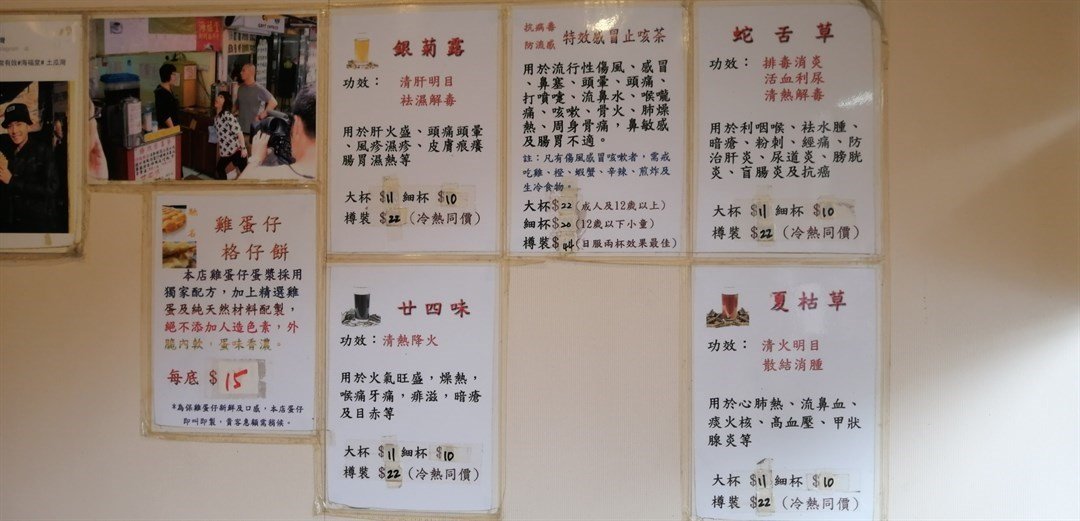 常有效#海福堂# 土瓜灣
銀菊露
功效：清肝明目
祛濕解毒
用於肝火盛、頭痛頭暈
、風疹濕疹、皮膚痕癢
腸胃濕熱等
大杯 $11 細杯 $10
樽裝 $22 (冷熱同價)
抗病毒
防流感
特效感冒止咳茶
用於流行性傷風、感冒
、鼻塞、頭暈、頭痛、
打噴嚏、流鼻水、喉嚨
痛、咳嗽、骨火、肺燥
熱、周身骨痛，鼻敏感
及腸胃不適。
註：凡有傷風感冒咳嗽者，需戒
吃雞、橙、蝦蟹、辛辣、煎炸及
生冷食物。
大杯$22 (成人及12歲以上)
細杯$20 (12歲以下小童)
樽裝$44 (日服兩杯效果最佳)
蛇舌草
功效：排毒消炎
活血利尿
清熱解毒
用於利咽喉、祛水腫、
暗瘡、粉刺、經痛、防
治肝炎、尿道炎、膀胱
炎、盲腸炎及抗癌
大杯 $11 細杯 $10
樽裝 $22 (冷熱同價)
馳名
雞蛋仔
格仔餅
本店雞蛋仔蛋漿採用
獨家配方，加上精選雞
蛋及純天然材料配製，
絕不添加人造色素，外
脆內軟，蛋味香濃。
每底 $15
*為保雞蛋仔新鮮及口感，本店蛋仔
即叫即製，貴客惠顧需稍候。
廿四味
功效：清熱降火
用於火氣旺盛，燥熱，
喉痛牙痛，痱滋，暗瘡
及目赤等
大杯 $11 細杯 $10
樽裝 $22 (冷熱同價)
夏枯草
功效：清火明目
散結消腫
用於心肺熱、流鼻血、
痰火核、高血壓、甲狀
腺炎等
大杯 $11 細杯 $10
樽裝 $22 (冷熱同價)